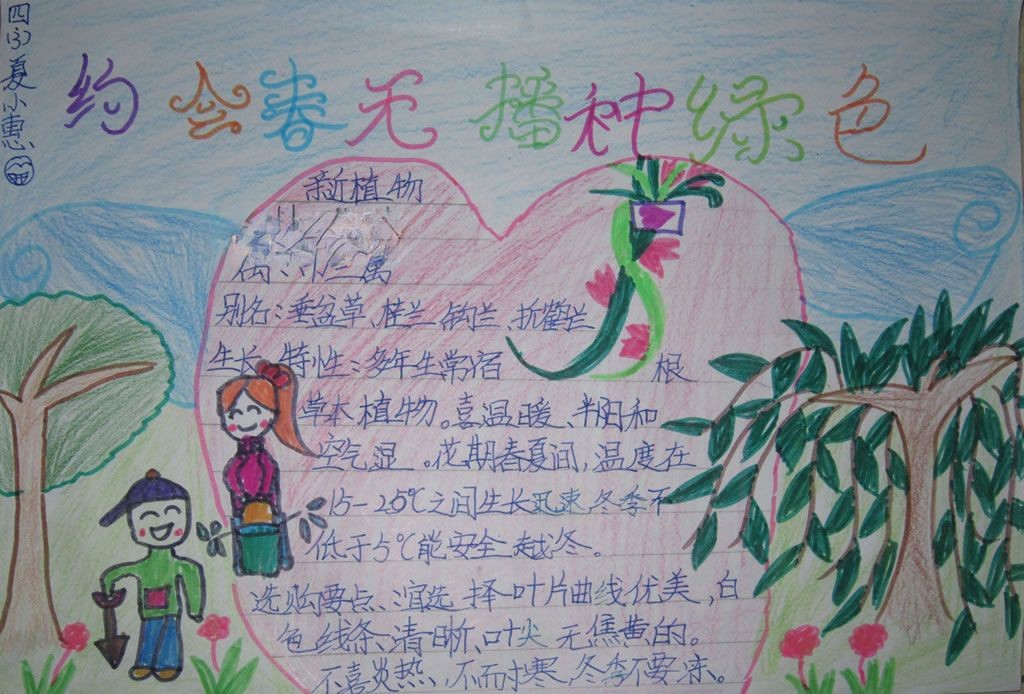 四(3)夏小惠
约会春天 播种绿色
新植物
别名：垂盆草、桂兰、钩兰、折鹤兰
生长特性：多年生常宿根
草本植物。喜温暖、半阴和
空气湿。花期春夏间，温度在
15-25℃之间生长迅速，冬季不
低于5℃能安全越冬。
选购要点、宜选择叶片曲线优美，白
色线条、清晰、叶尖无焦黄的。
不喜炎热、不耐寒，冬季不要冻。